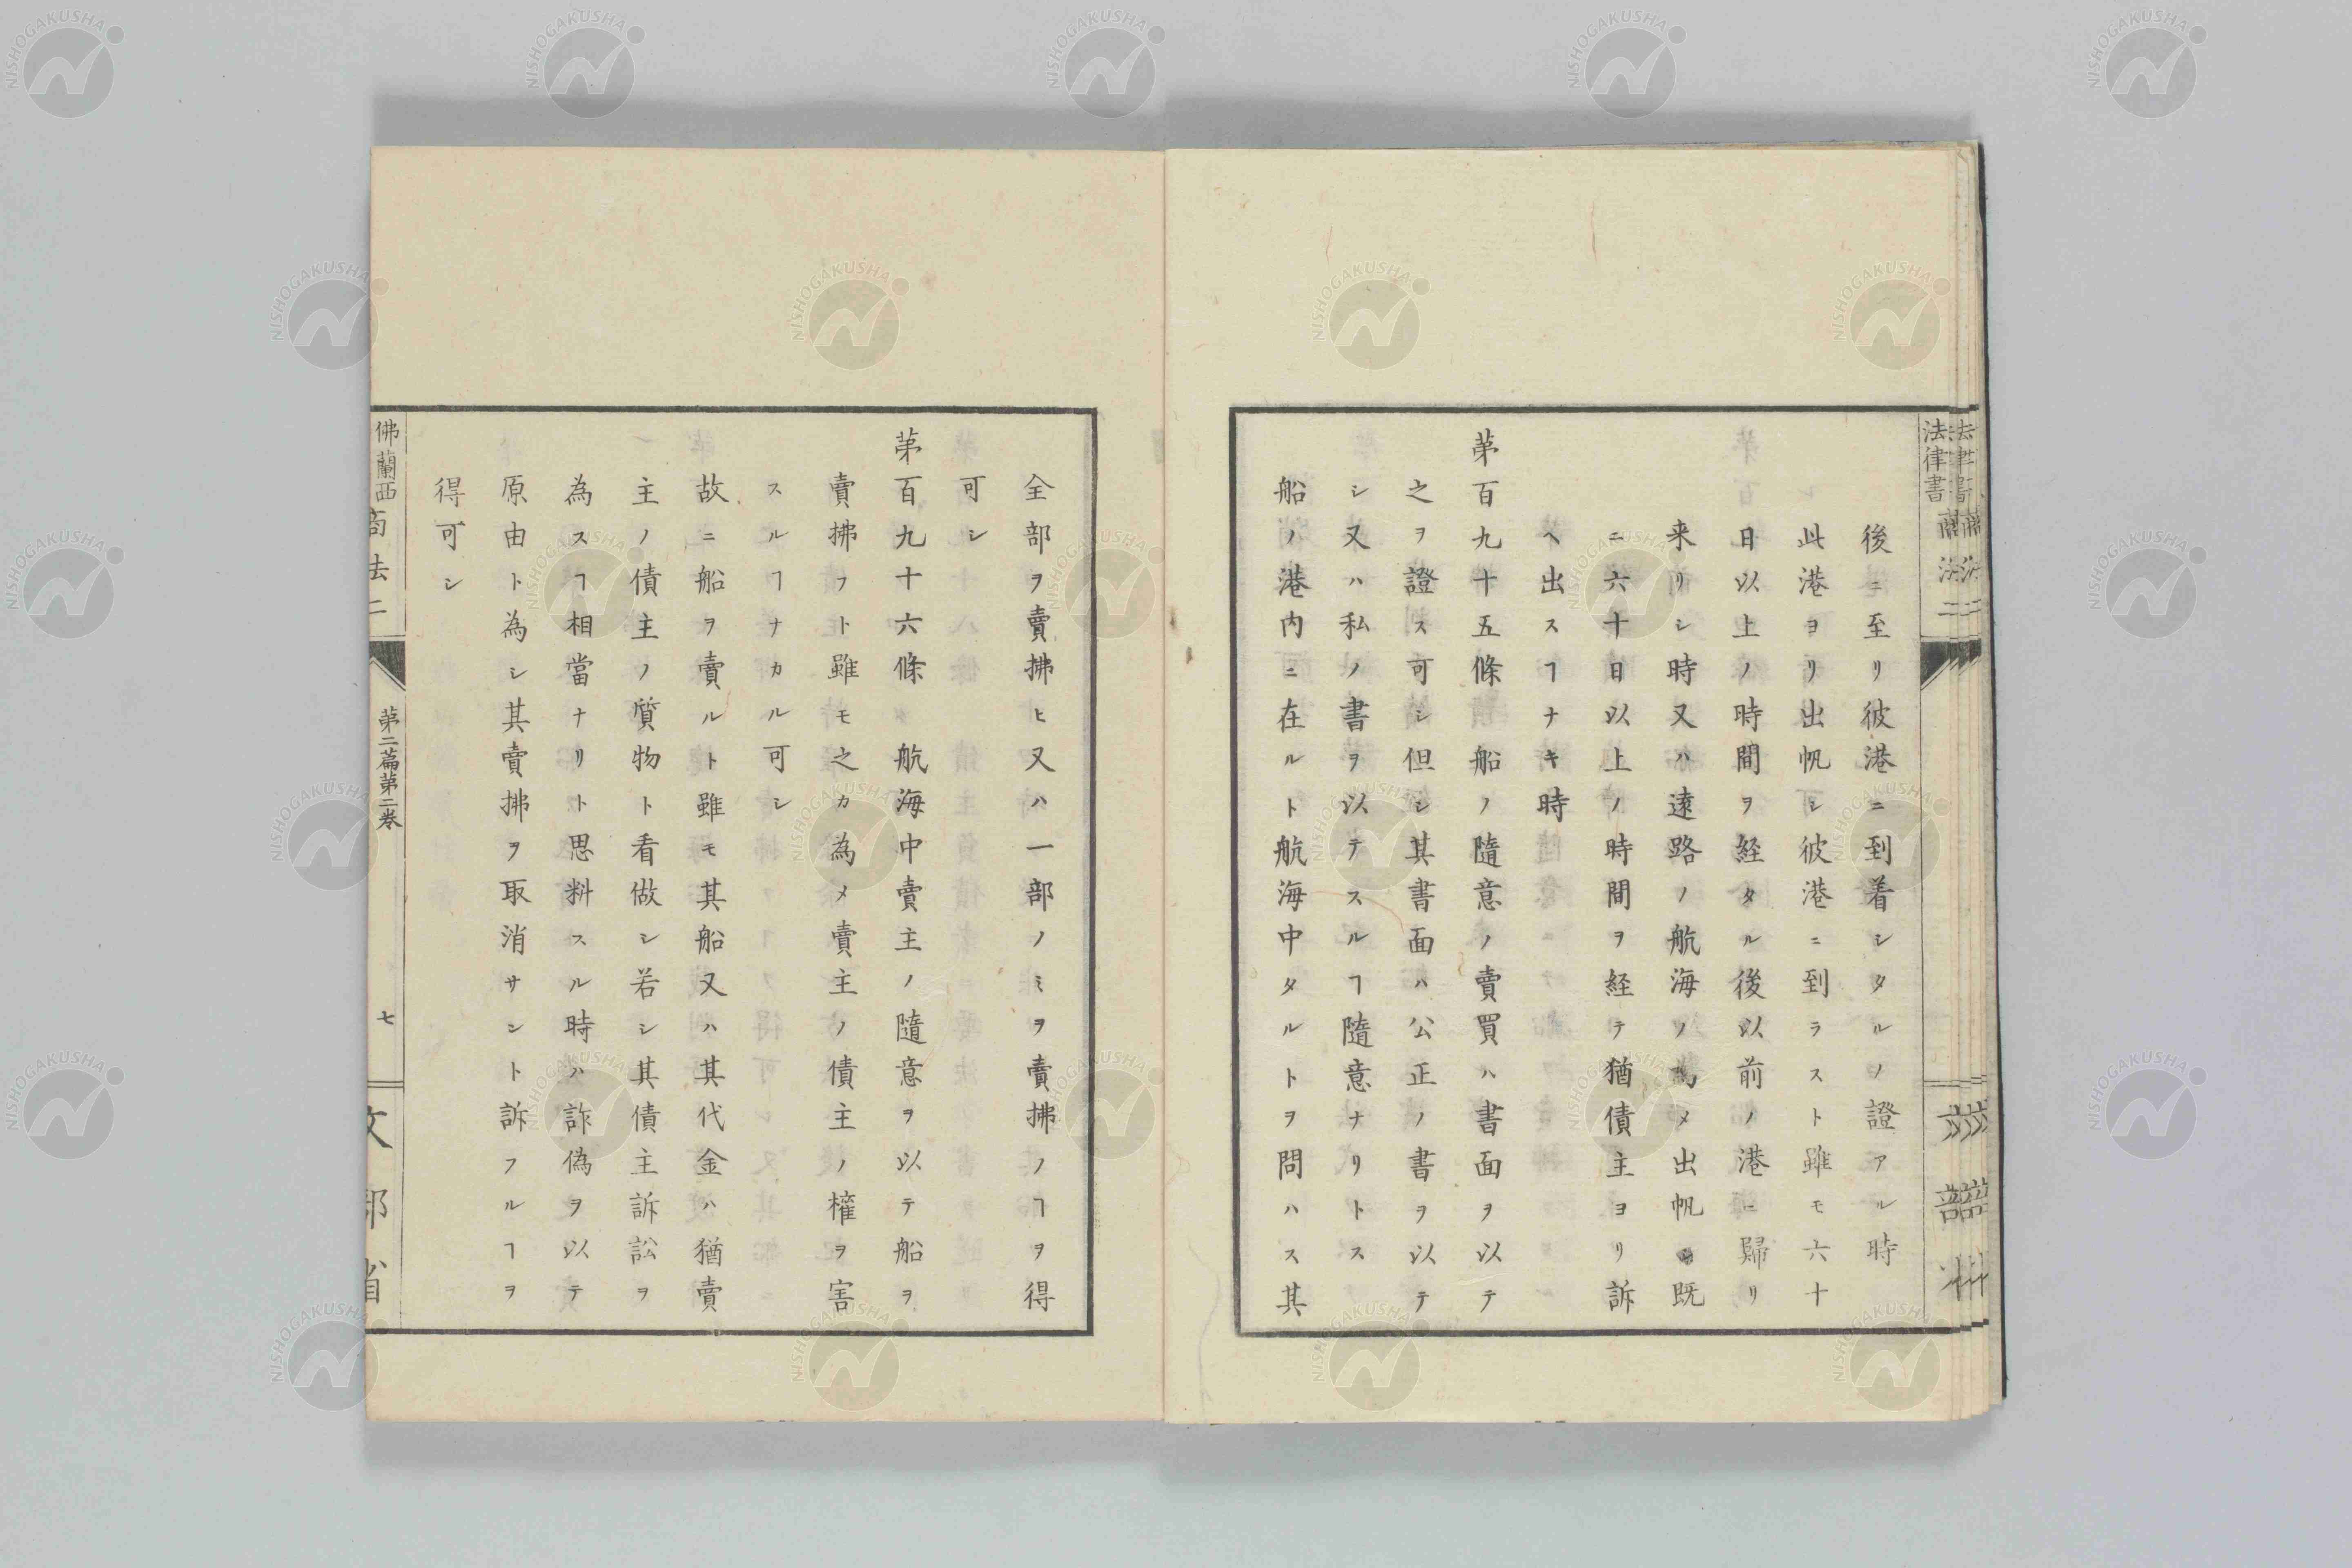 法律書 商法二
後ニ至リ彼港ニ到着シタルノ證アル時
此港ヨリ出帆シ彼港ニ到ラスト雖モ六十
日以上ノ時間ヲ経タル後以前ノ港ニ歸リ
来リシ時又ハ遠路ノ航海ノ為メ出帆シ既
ニ六十日以上ノ時間ヲ経テ猶債主ヨリ訴
ヘ出スヿナキ時
苐百九十五條船ノ隨意ノ賣買ハ書面ヲ以テ
之ヲ證ス可シ但シ其書面ハ公正ノ書ヲ以テ
シ又ハ私ノ書ヲ以テスルヿ隨意ナリトス
船ノ港内ニ在ルト航海中タルトヲ問ハス其
全部ヲ賣拂ヒ又ハ一部ノミヲ賣拂ノヿヲ得
可シ
苐百九十六條航海中賣主ノ隨意ヲ以テ船ヲ
賣拂フト雖モ之カ為メ賣主ノ債主ノ権ヲ害
スルヿナカル可シ
故ニ船ヲ賣ルト雖モ其船又ハ其代金ハ猶賣
主ノ債主ノ質物ト看做シ若シ其債主訴訟ヲ
為スヿ相當ナリト思料スル時ハ詐偽ヲ以テ
原由ト為シ其賣拂ヲ取消サント訴フルヿヲ
得可シ
佛蘭西商法二
苐二篇苐二巻
七
文部省
NISHOGAKUSHA